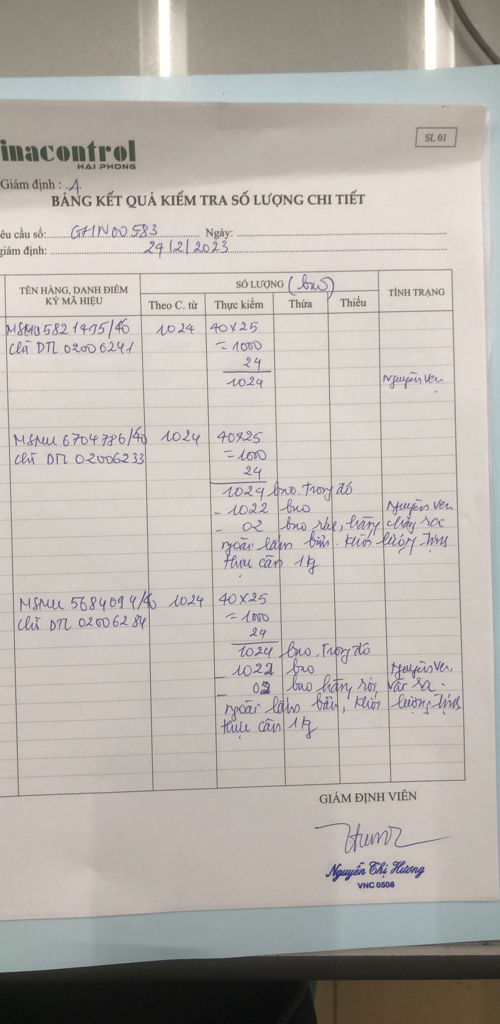 inacontrol
HAI PHONG
SL 01
Giám định : A
BẢNG KẾT QUẢ KIỂM TRA SỐ LƯỢNG CHI TIẾT
êu cầu số: GHN00583 Ngày:
giám định: 24/2/2023
TÊN HÀNG, DANH ĐIỂM KÝ MÃ HIỆU
SỐ LƯỢNG (bao)
TÌNH TRẠNG
Theo C. từ Thực kiểm Thừa Thiếu
MSMU 5821495/40 1024 40x25
chì DTL 02006241 = 1000
24
1024 Nguyên vẹn
MSMU 6704786/40 1024 40x25
chì DTL 02006233 = 1000
24
1024 bao. Trong đó
- 1022 bao Nguyên vẹn
- 02 bao rách, hàng chảy ra
ngoài lấm bẩn. Khối lượng tịnh
thực cân 1 kg
MSMU 5684094/40 1024 40x25
chì DTL 02006284 = 1000
24
1024 bao. Trong đó
- 1022 bao Nguyên vẹn.
- 02 bao hàng rơi vãi ra
ngoài lấm bẩn, khối lượng tịnh
thực cân 1 kg
GIÁM ĐỊNH VIÊN
Nguyễn Thị Hương
VNC 0506